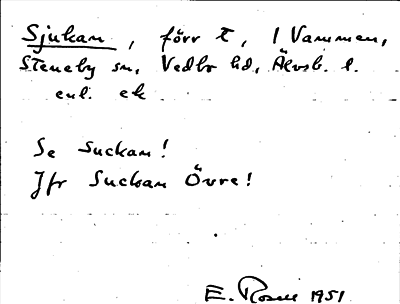 Sjukan, förr t, i Vammen,
Steneby sn, Vedbo hd, Älvsb. l.
enl. ek
Se Suckan!
Jfr Suckan Övre!
E. Rosell 1951